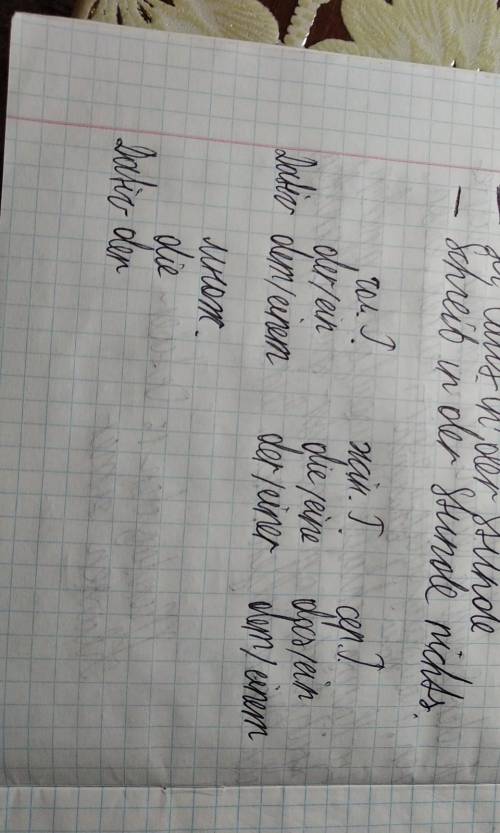 in der Stunde
– Schreib in der Stunde nichts.
чол. жін. сер.
der/ein die/eine das/ein
Dativ dem/einem der/einer dem/einem
множ.
die
Dativ der